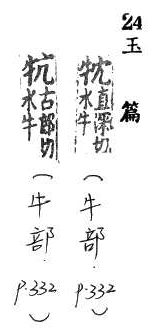 24 玉篇
直深切水牛(牛部. p.332)
牨古郎切水牛(牛部. p.332)